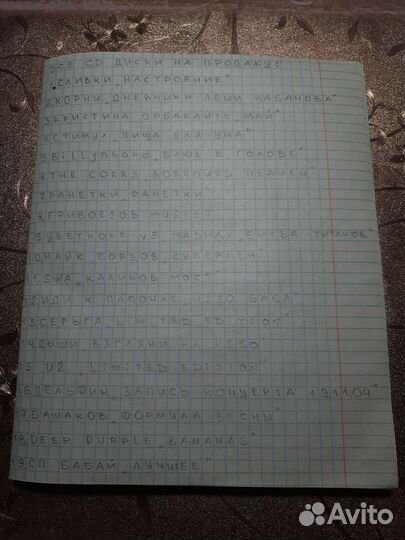 ВСЕ CD ДИСКИ НА ПРОДАЖУ:
1.СЛИВКИ „НАСТРОЕНИЕ"
2.КОРНИ „ДНЕВНИКИ ЛЕШИ КАБАНОВА"
3.КРИСТИНА ОРБАКАЙТЕ „МАЙ"
4.СТИМУЛ „ПИЩА ДЛЯ УМА"
5.Billy's Band „БЛЮЗ В ГОЛОВЕ"
6.THE CORRS „BORROWED HEAVEN"
7.РАНЕТКИ „РАНЕТКИ"
8.ГРИБОЕДОВ MUSIC
9.ЦВЕТКОFF VS МАDMАХ „БИТВА ТИТАНОВ"
10.НАЙК БОРЗОВ „СУПЕРМЕН"
11.SWA „КАЛИНОВ МОСТ"
12.ИДИ К ПАПОЧКЕ БАБА"
13.СЕРЬГА „LIMITED EDITION"
14.ДЫШИ „ВЗГЛЯНИ НА НЕБО"
15 U2 „LIMITED EDITION"
16.ДЕЛЬФИН „ЗАПИСЬ КОНЦЕРТА 19.11.04"
17.БАШАКОВ „ФОРМУЛА ВЕСНЫ"
18.DEEP PURPLE „BANANAS"
19.СП БАБАЙ „ЛУЧШЕЕ"
Avito